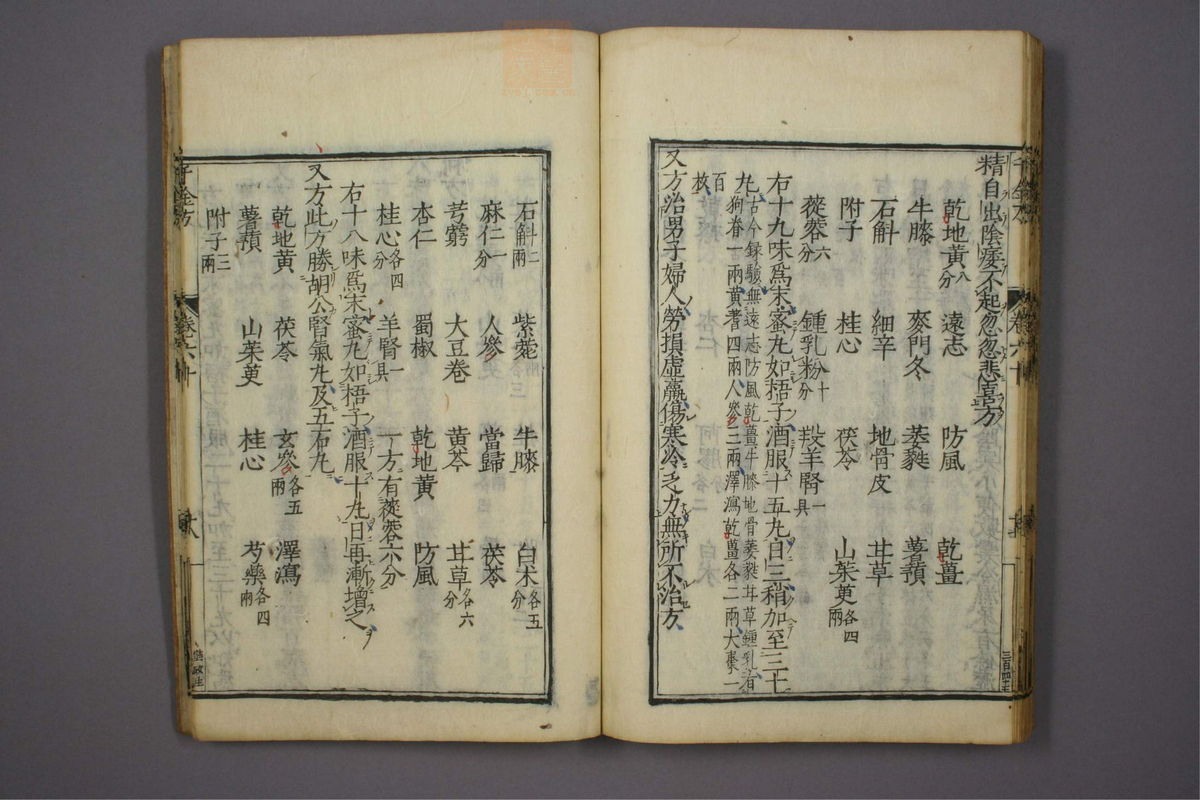 精自出陰痿不起忽忽悲喜方
乾地黃八分 遠志 防風 乾薑
牛膝 麥門冬 萎蕤 薯蕷
石斛 細辛 地骨皮 甘草
附子 桂心 茯苓 山茱萸各四兩
蓯蓉六分 鍾乳粉十分 羖羊腎一具
右十九味爲末蜜丸如梧子酒服十五丸日三稍加至三十
丸古今録驗無遠志防風乾薑牛膝地骨萎蕤甘草鍾乳有
狗脊一兩黃耆四兩人參三兩澤瀉乾薑各二兩大棗一
百枚
又方治男子婦人勞損虛羸傷寒冷乏力無所不治方
千金方
卷六十
石斛二兩 紫菀 牛膝 白朮各五分
麻仁一分 人參 當歸 茯苓
芎藭 大豆卷 黃芩 甘草各六分
杏仁 蜀椒 乾地黃 防風
桂心各四分 羊腎一具 一方有蓯蓉六分
右十八味爲末蜜丸如梧子酒服十丸日再漸增之
又方此方勝胡公腎氣丸及五石丸
乾地黃 茯苓 玄參各五兩 澤瀉
薯蕷 山茱萸 桂心 芍藥各四兩
附子三兩
千金方
卷六十